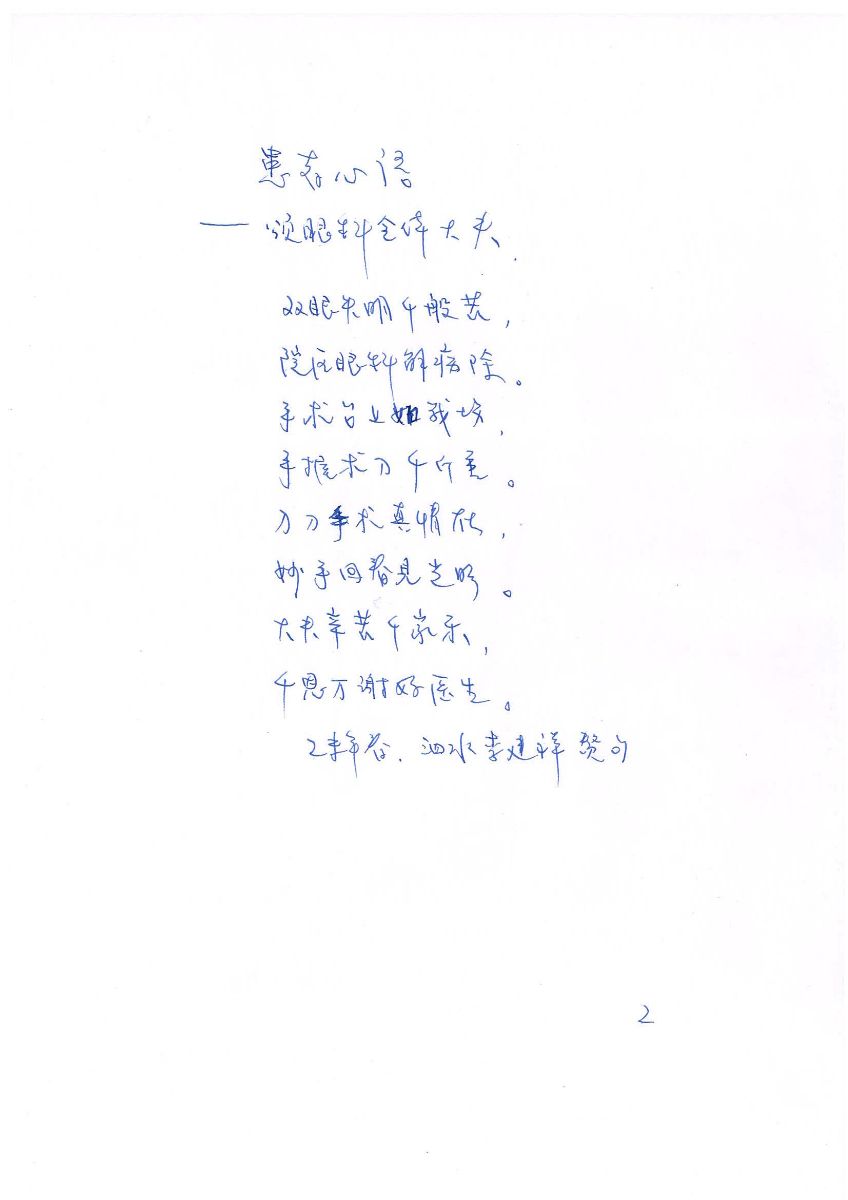 患者心语
——颂眼科全体大夫
双眼失明千般苦，
院在眼科解病除。
手术台上如战场，
手握术刀千斤重。
刀刀手术真情在，
妙手回春见光明。
大夫辛苦千家乐，
千恩万谢好医生。
春. 泗水李建祥赞句
2